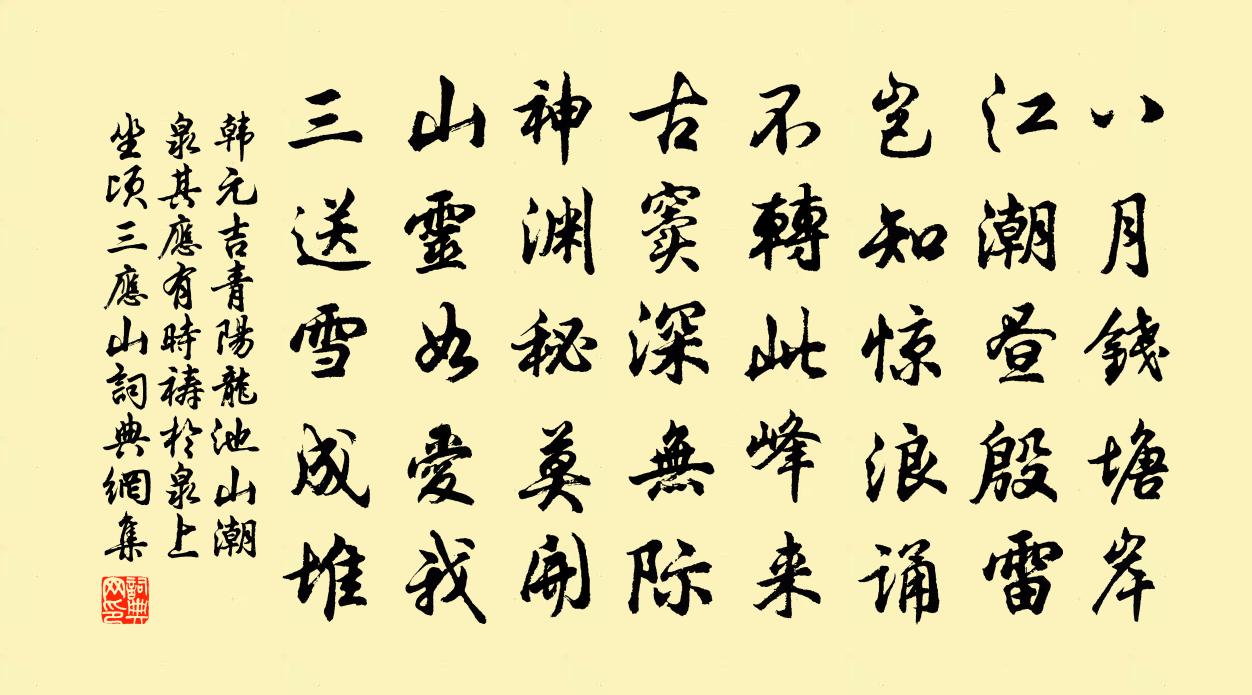 八月錢塘岸
江潮昼殷雷
岂知惊浪诵
不轉此峰来
古窦深無际
神渊秘莫開
山靈如愛我
三送雪成堆
韩元吉青陽龍池山潮
泉其應有時禱於泉上
坐頃三應山詞典網集
詞典
网印